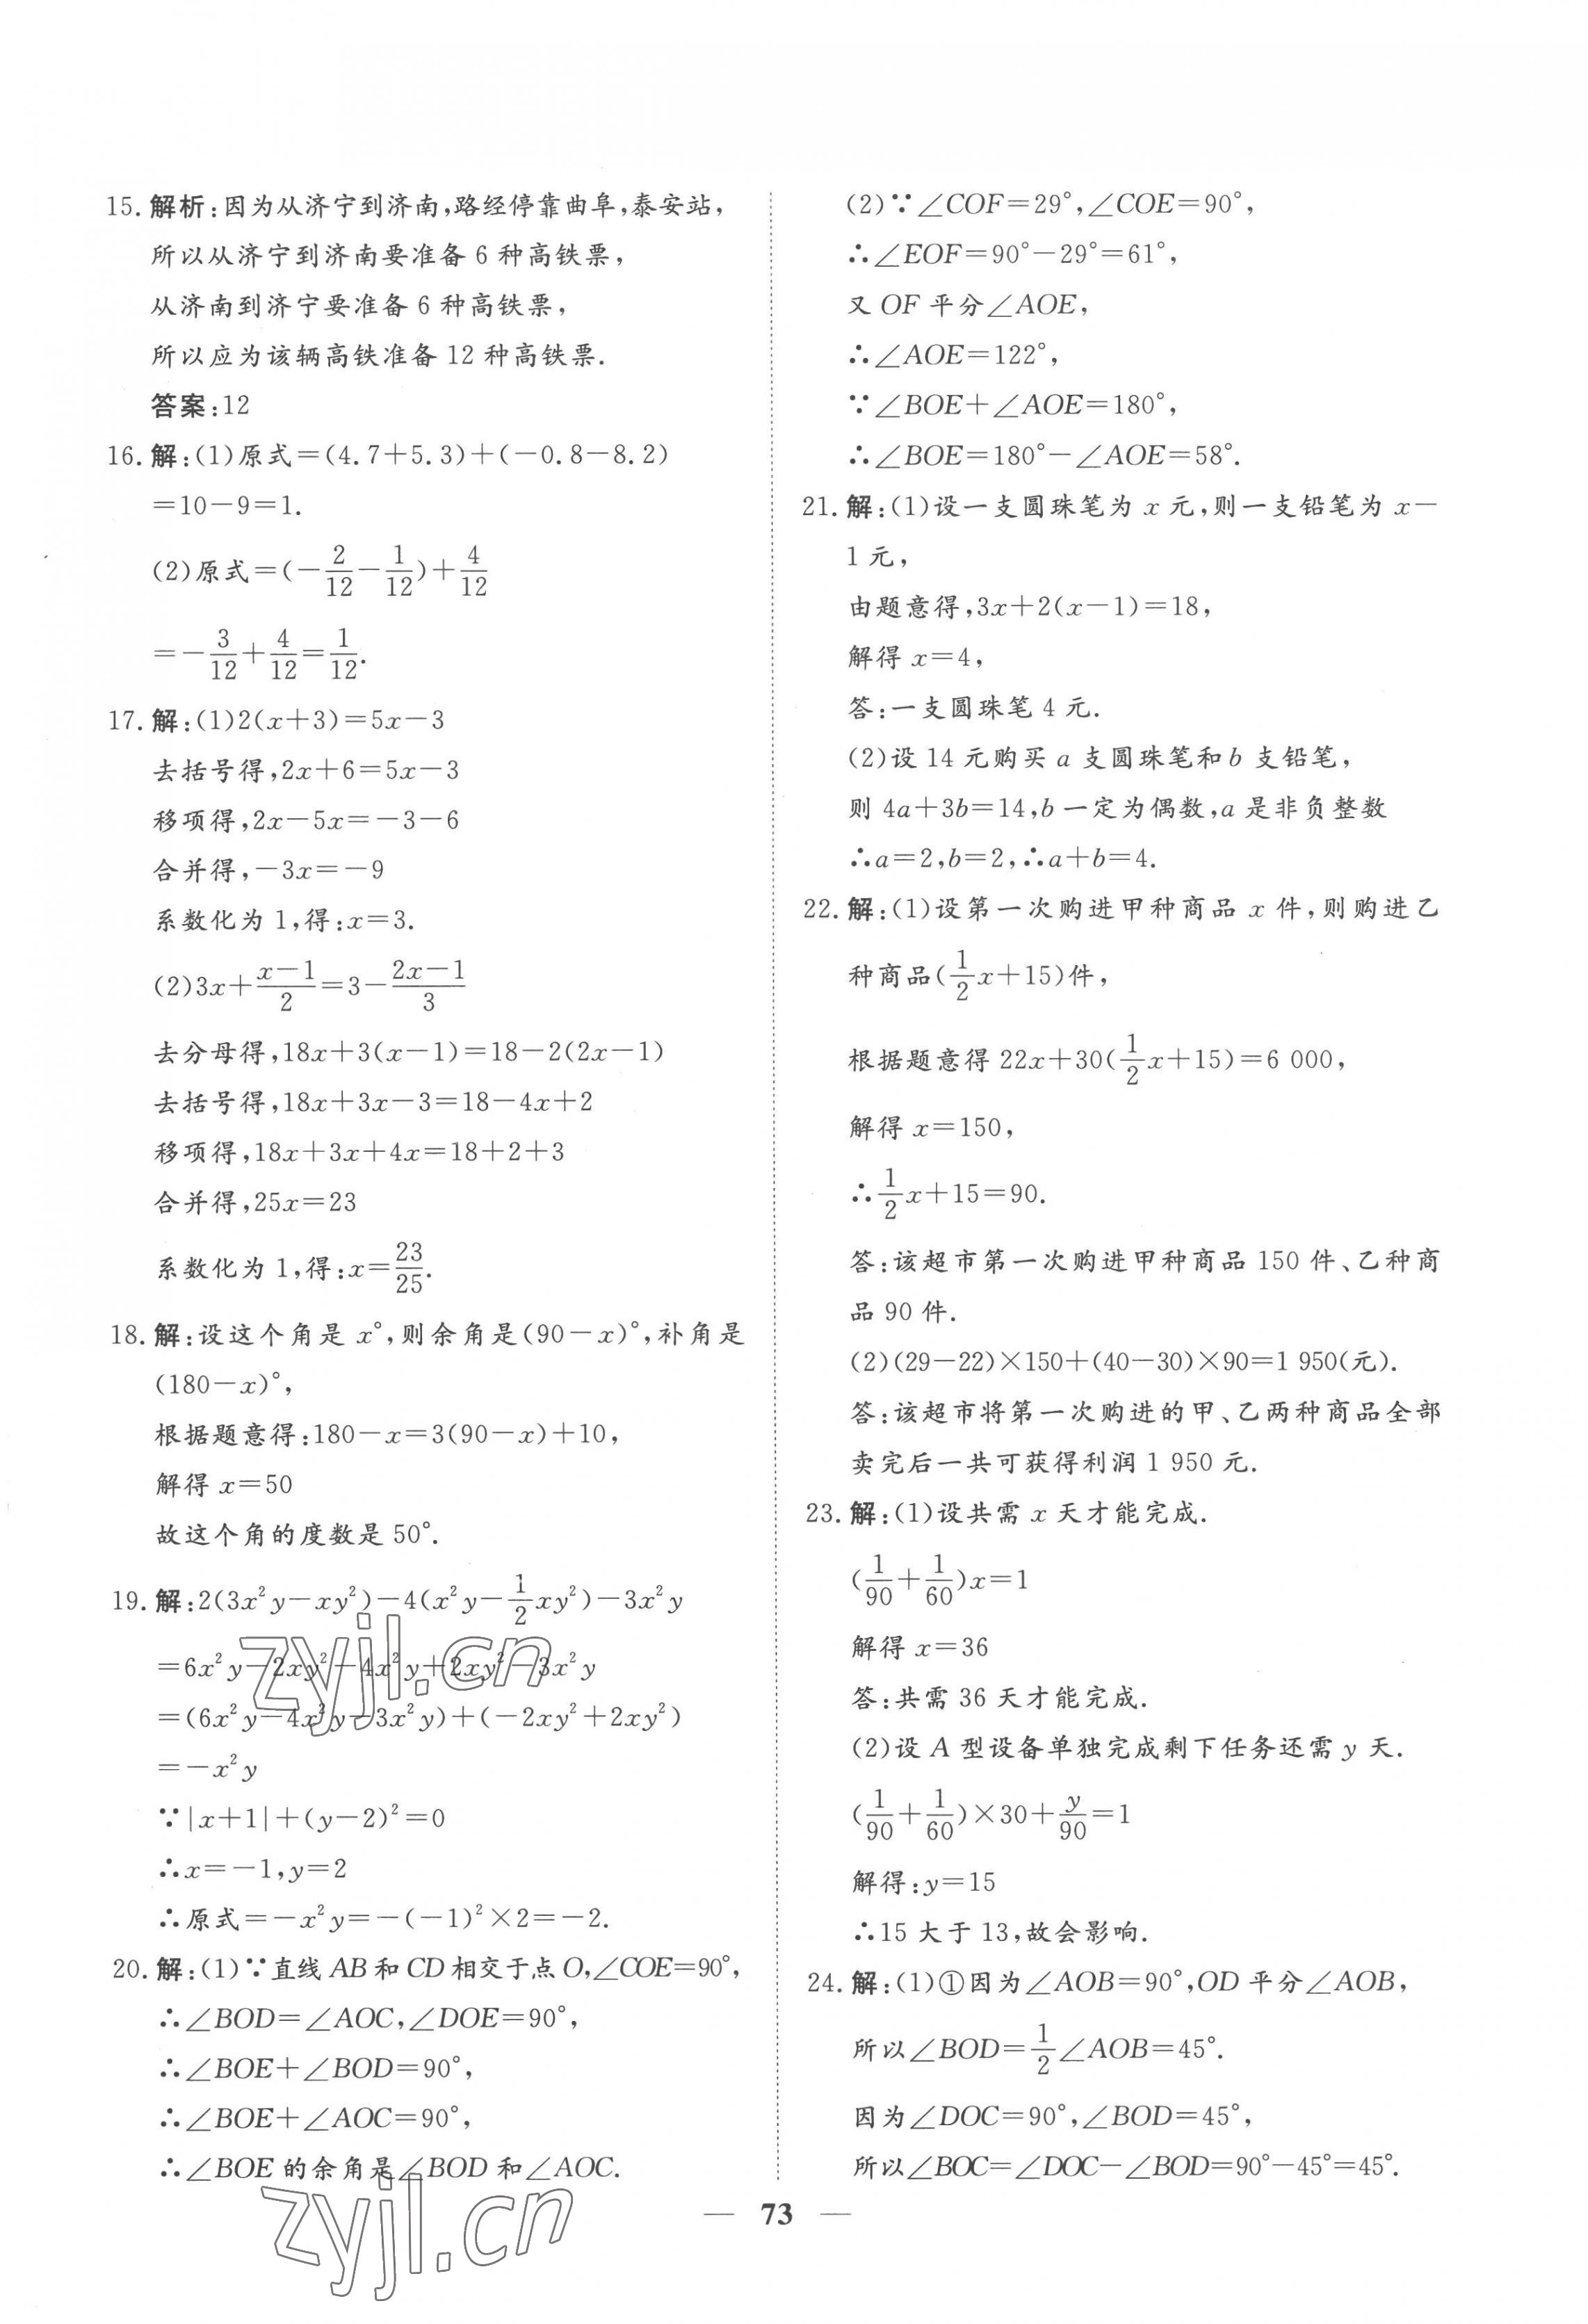 15. 解析:因为从济宁到济南,路经停靠曲阜,泰安站,
所以从济宁到济南要准备 6 种高铁票,
从济南到济宁要准备 6 种高铁票,
所以应为该辆高铁准备 12 种高铁票.
答案:12
16. 解:(1)原式=(4.7+5.3)+(-0.8-8.2)
=10-9=1.
(2)原式=(-2/12-1/12)+4/12
=-3/12+4/12=1/12.
17. 解:(1)2(x+3)=5x-3
去括号得,2x+6=5x-3
移项得,2x-5x=-3-6
合并得,-3x=-9
系数化为 1,得:x=3.
(2)3x+(x-1)/2=3-(2x-1)/3
去分母得,18x+3(x-1)=18-2(2x-1)
去括号得,18x+3x-3=18-4x+2
移项得,18x+3x+4x=18+2+3
合并得,25x=23
系数化为 1,得:x=23/25.
18. 解:设这个角是 x°,则余角是(90-x)°,补角是
(180-x)°,
根据题意得:180-x=3(90-x)+10,
解得 x=50
故这个角的度数是 50°.
19. 解:2(3x²y-xy²)-4(x²y-1/2xy²)-3x²y
=6x²y-2xy²-4x²y+2xy²-3x²y
=(6x²y-4x²y-3x²y)+(-2xy²+2xy²)
=-x²y
∵|x+1|+(y-2)²=0
∴x=-1,y=2
∴原式=-x²y=-(-1)²×2=-2.
20. 解:(1)∵直线 AB 和 CD 相交于点 O,∠COE=90°,
∴∠BOD=∠AOC,∠DOE=90°,
∴∠BOE+∠BOD=90°,
∴∠BOE+∠AOC=90°,
∴∠BOE 的余角是∠BOD 和∠AOC.
(2)∵∠COF=29°,∠COE=90°,
∴∠EOF=90°-29°=61°,
又 OF 平分∠AOE,
∴∠AOE=122°,
∵∠BOE+∠AOE=180°,
∴∠BOE=180°-∠AOE=58°.
21. 解:(1)设一支圆珠笔为 x 元,则一支铅笔为 x-
1 元,
由题意得,3x+2(x-1)=18,
解得 x=4,
答:一支圆珠笔 4 元.
(2)设 14 元购买 a 支圆珠笔和 b 支铅笔,
则 4a+3b=14,b 一定为偶数,a 是非负整数
∴a=2,b=2,∴a+b=4.
22. 解:(1)设第一次购进甲种商品 x 件,则购进乙
种商品(1/2x+15)件,
根据题意得 22x+30(1/2x+15)=6 000,
解得 x=150,
∴1/2x+15=90.
答:该超市第一次购进甲种商品 150 件、乙种商
品 90 件.
(2)(29-22)×150+(40-30)×90=1 950(元).
答:该超市将第一次购进的甲、乙两种商品全部
卖完后一共可获得利润 1 950 元.
23. 解:(1)设共需 x 天才能完成.
(1/90+1/60)x=1
解得 x=36
答:共需 36 天才能完成.
(2)设 A 型设备单独完成剩下任务还需 y 天.
(1/90+1/60)×30+y/90=1
解得:y=15
∴15 大于 13,故会影响.
24. 解:(1)①因为∠AOB=90°,OD 平分∠AOB,
所以∠BOD=1/2∠AOB=45°.
因为∠DOC=90°,∠BOD=45°,
所以∠BOC=∠DOC-∠BOD=90°-45°=45°.
— 73 —
zyjl.cn
zyjl.cn